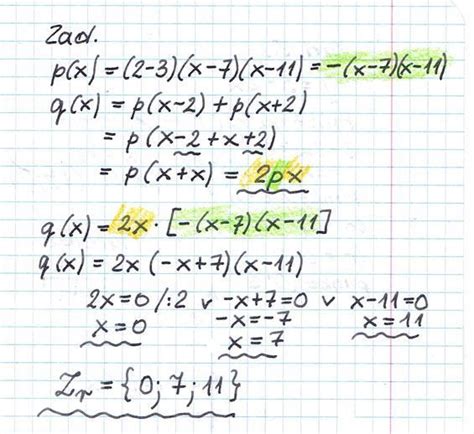 Zad.
p(x) = (2-3)(x-7)(x-11) = -(x-7)(x-11)
q(x) = p(x-2) + p(x+2)
= p(x-2+x+2)
= p(x+x) = 2px
q(x) = 2x · [-(x-7)(x-11]
q(x) = 2x (-x+7)(x-11)
2x=0 /:2 ∨ -x+7=0 ∨ x-11=0
x=0 -x=-7 x=11
x=7
Zr = {0; 7; 11}